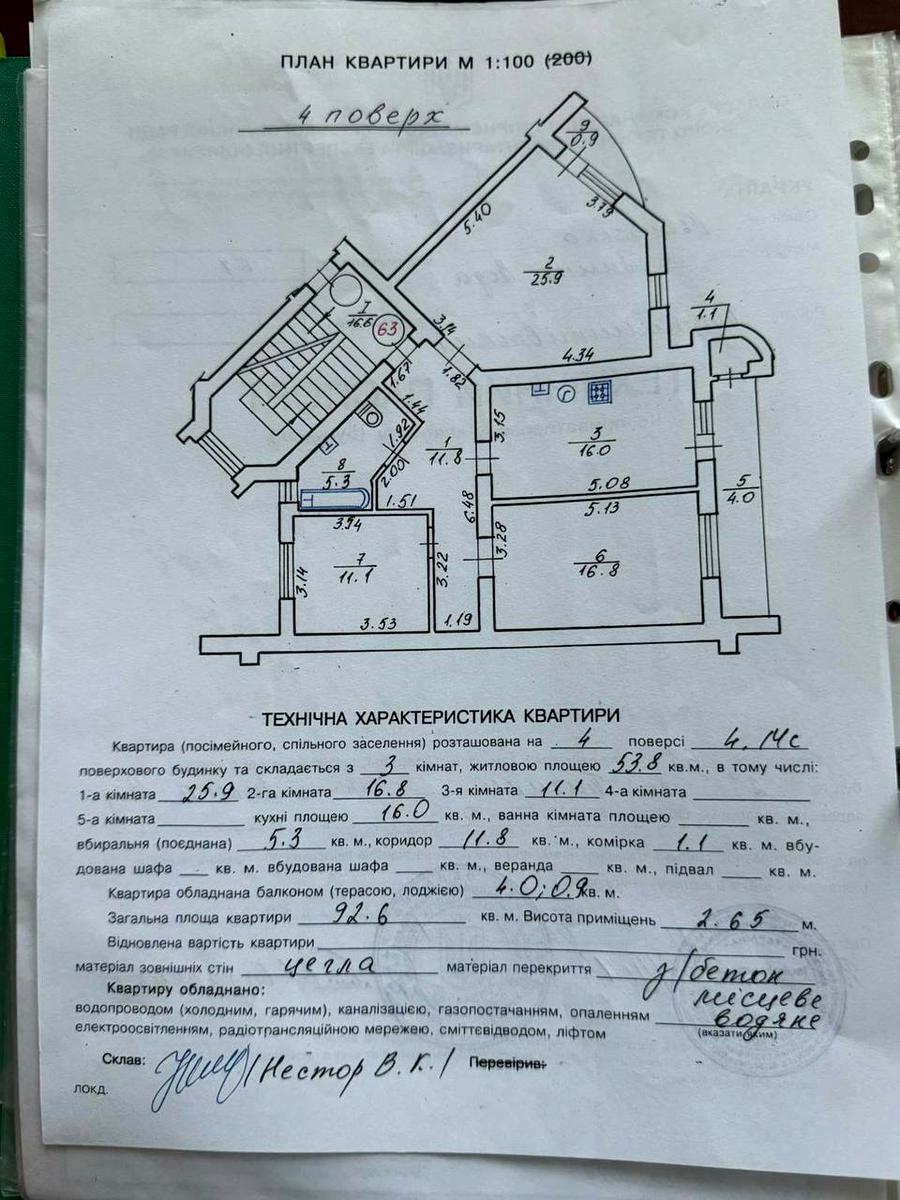 ПЛАН КВАРТИРИ М 1:100 (200)
4 поверх
9
0.9
3.79
5.40
2
25.9
I
16.6
63
3.14
1.82
4.34
4
1.1
1.67
1.44
1.92
2.00
1
11.8
3.15
3
16.0
5.08
8
5.3
1.51
6.48
5.13
5
4.0
3.54
7
11.1
3.14
3.22
3.28
6
16.8
3.53
1.19
ТЕХНІЧНА ХАРАКТЕРИСТИКА КВАРТИРИ
Квартира (посімейного, спільного заселення) розташована на 4 поверсі 4,14с
поверхового будинку та складається з 3 кімнат, житловою площею 53.8 кв.м., в тому числі:
1-а кімната 25.9 2-га кімната 16.8 3-я кімната 11.1 4-а кімната
5-а кімната кухні площею 16.0 кв. м., ванна кімната площею кв. м.,
вбиральня (поєднана) 5.3 кв. м., коридор 11.8 кв. м., комірка 1.1 кв. м. вбу-
дована шафа кв. м. вбудована шафа кв. м., веранда кв. м., підвал кв. м.
Квартира обладнана балконом (терасою, лоджією) 4.0; 0.9 кв. м.
Загальна площа квартири 92.6 кв. м. Висота приміщень 2.65 м.
Відновлена вартість квартири грн.
матеріал зовнішніх стін цегла матеріал перекриття з/бетон
Квартиру обладнано: місцеве
водопроводом (холодним, гарячим), каналізацією, газопостачанням, опаленням водяне
електроосвітленням, радіотрансляційною мережею, сміттєвідводом, ліфтом (вказати яким)
Склав: /Нестор В.К./ Перевірив:
ЛОКД.